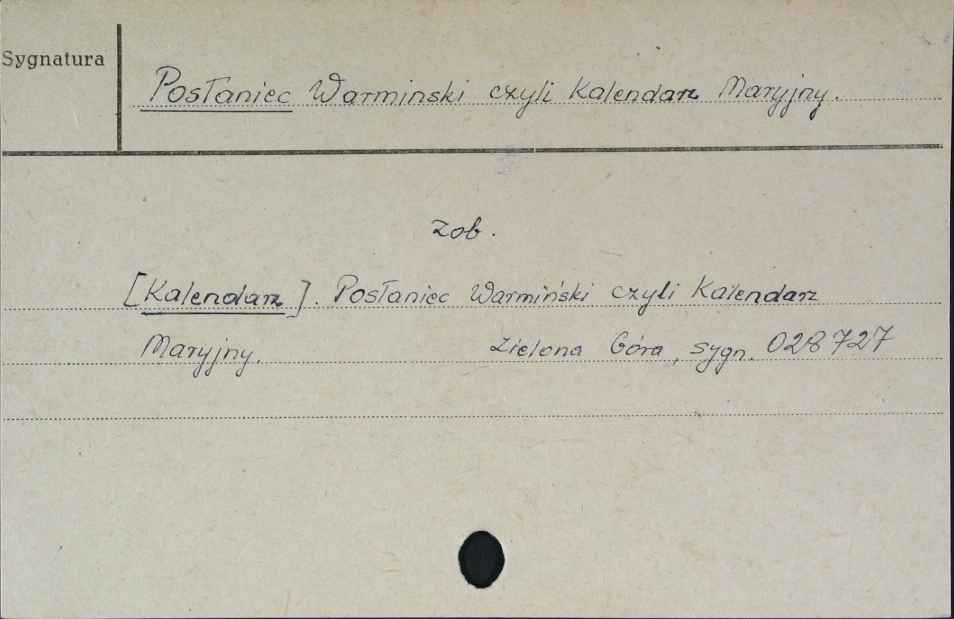 Sygnatura
Posłaniec Warminski czyli Kalendarz Maryjny.
zob.
[Kalendarz]. Posłaniec Warmiński czyli Kalendarz
Maryjny. Zielona Góra, sygn. 028727